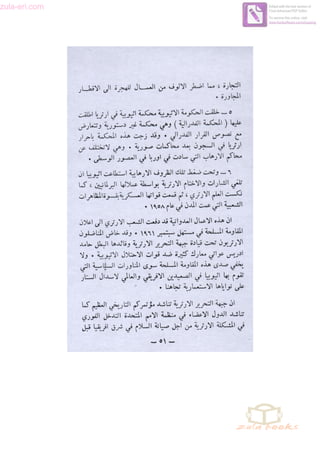 zula-eri.com
التجارة ، مما اضطر الالوف من العمـــال للهجرة الى الاقطـــار
المجاورة .
٥ ــ خلقت الحكومة الاثيوبية محكمة اثيوبية في ارتريا اطلقت
عليها ( المحكمة الفدرالية ) وهي محكمة غير دستورية وتتعارض
مع نصوص القرار الفدرالي . وقد زجت هذه المحكمة باحرار
ارتريا في السجون بعد محاكمات صورية . وهي لاتختلف عن
محاكم الارهاب التي سادت في اوربا في العصور الوسطى .
٦ ــ وتحت ضغط تلك الظروف الارهابية استطاعت اثيوبيا ان
تلغي الشارات والاختام الارترية بواسطة عملائها البرلمانيين ، كما
نكست العلم الارتري ، ثم قمعت قواتها العسكرية بقسوة المظاهرات
الشعبية التي عمت المدن في عام ١٩٥٨ .
ان هذه الاعمال العدوانية قد دفعت الشعب الارتري الى اعلان
المقاومة المسلحة في مستهل سبتمبر ١٩٦١ . وقد خاض المناضلون
الارتريون تحت قيادة جبهة التحرير الارترية وقائدها البطل حامد
ادريس عواتي معارك كثيرة ضد قوات الاحتلال الاثيوبية . ولا
يخفي صدى هذه المقاومة المسلحة سوى المناورات السياسية التي
تقوم بها اثيوبيا في الصعيدين الافريقي والعالمي لاسدال الستار
على نواياها الاستعمارية تجاهنا .
ان جبهة التحرير الارترية تناشد مؤتمركم التاريخي العظيم كما
تناشد الدول الاعضاء في منظمة الامم المتحدة التدخل الفوري
في المشكلة الارترية من اجل صيانة السلام في شرق افريقيا قبل
ــ ٥١ ــ
zula books